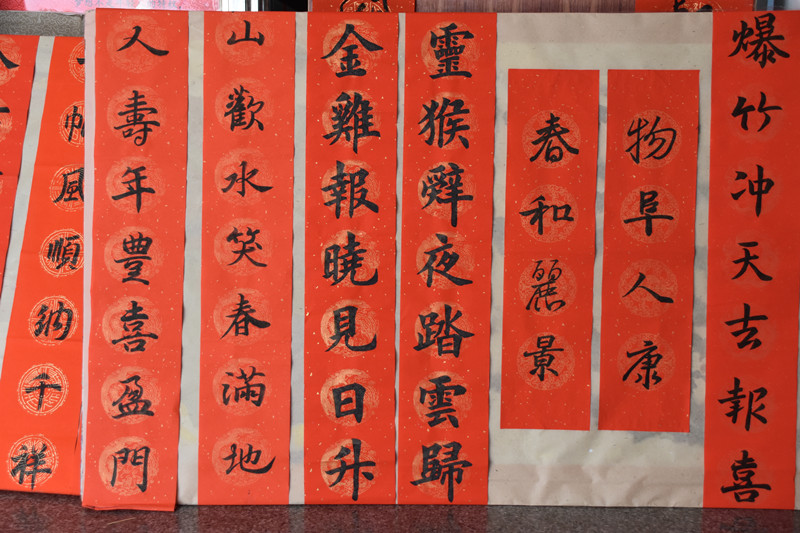 爆竹冲天去報喜
物阜人康
春和麗景
靈猴辭夜踏雲歸
金雞報曉見日升
山歡水笑春滿地
人壽年豊喜盈門
一帆風順納千祥